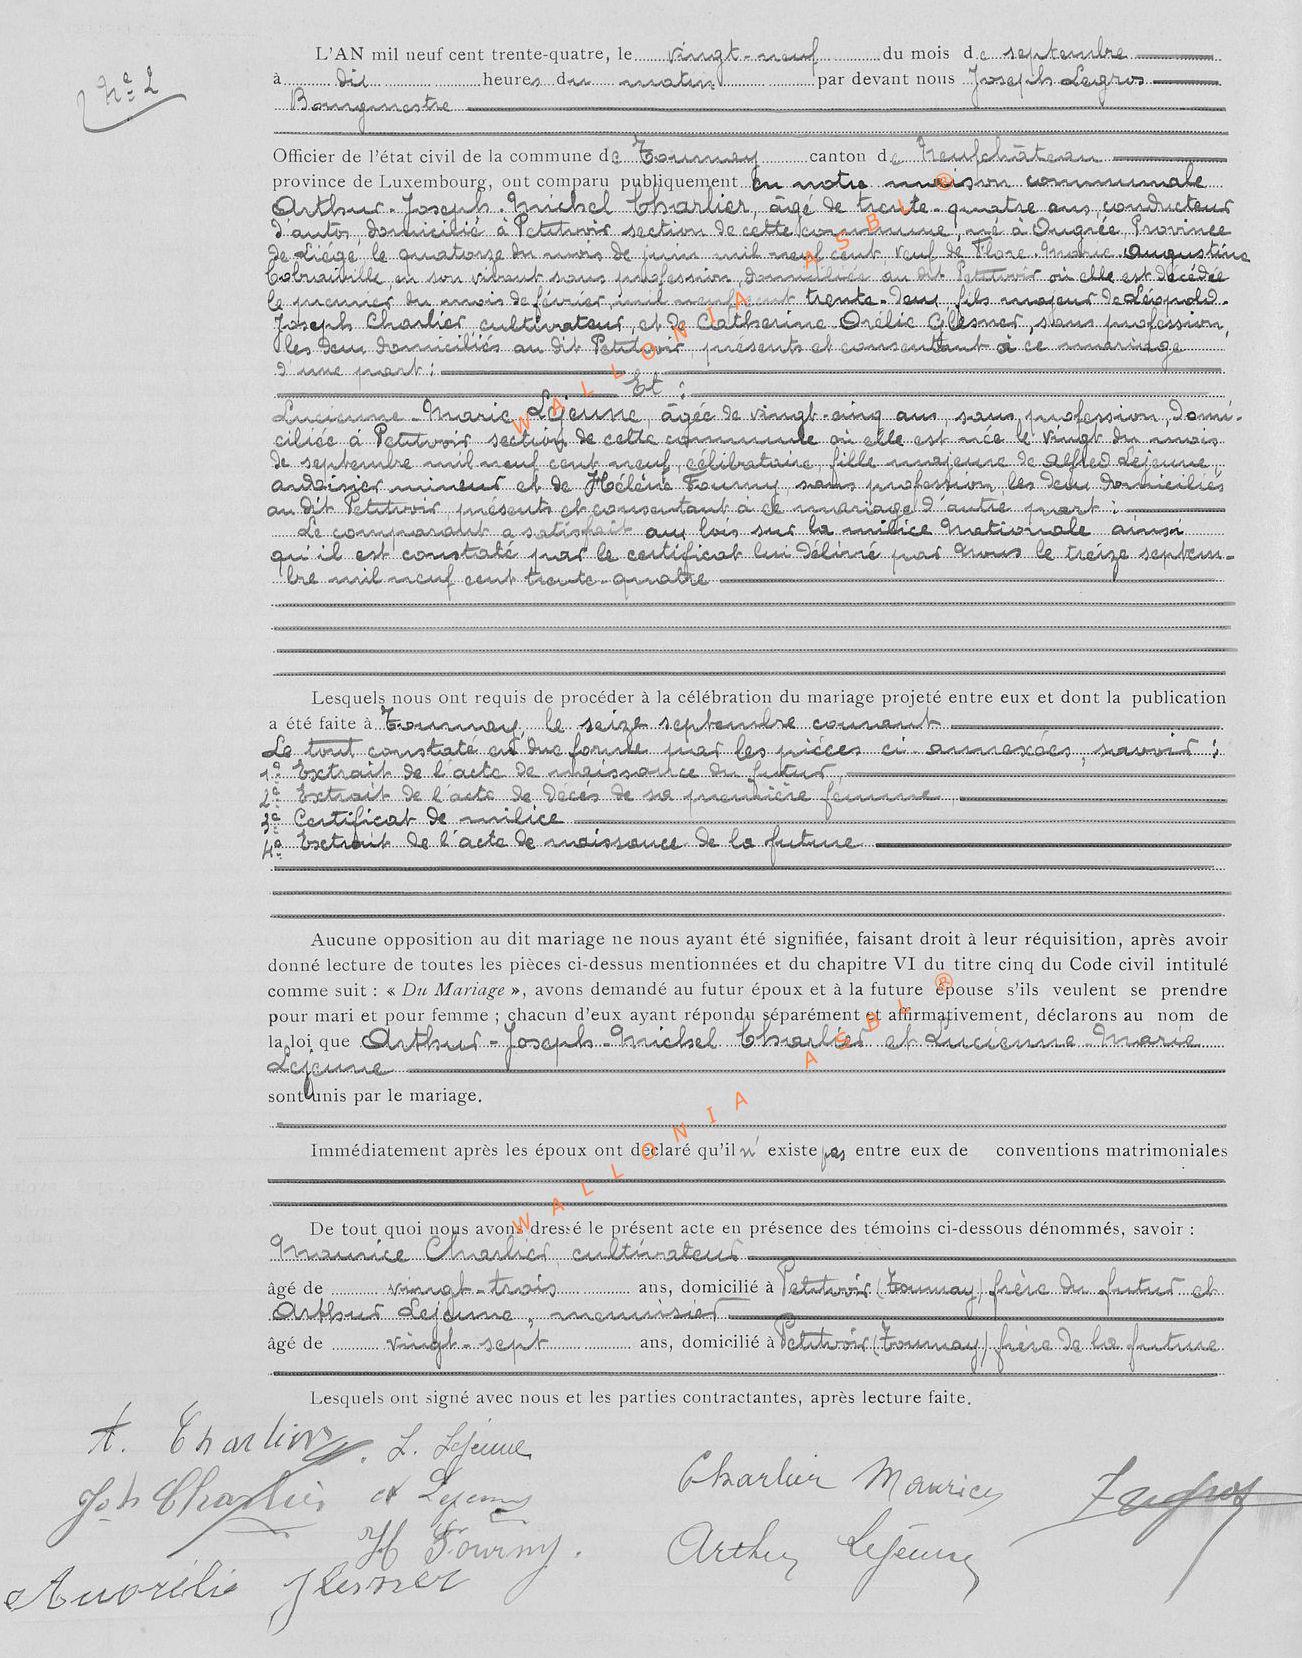 N° 2
L'AN mil neuf cent trente-quatre, le vingt-neuf du mois de septembre
à dix heures du matin par devant nous Joseph Legros
Bourgmestre
Officier de l'état civil de la commune de Tournay canton de Neufchâteau
province de Luxembourg, ont comparu publiquement en notre maison communale
Arthur-Joseph-Michel Charlier, âgé de trente-quatre ans, conducteur
d'autos, domicilié à Petitvoir section de cette commune, né à Ougrée Province
de Liége, le quatorze du mois de juin mil neuf cent, veuf de Flore Marie Augustine
en son vivant sans profession, domiciliée au dit Petitvoir où elle est décédée
le premier du mois de février mil neuf cent trente-deux fils majeur de Léopold-
Joseph Charlier, cultivateur, et de Catherine Orélie Glesner, sans profession,
les deux domiciliés au dit Petitvoir présents et consentant à ce mariage
d'une part :
Et :
Lucienne-Marie Lejeune, âgée de vingt-cinq ans, sans profession, domi-
ciliée à Petitvoir section de cette commune où elle est née le vingt du mois
de septembre mil neuf cent neuf, célibataire, fille majeure de Alfred Lejeune,
ardoisier mineur et de Hélène Fourny, sans profession, les deux domiciliés
au dit Petitvoir, présents et consentant à ce mariage d'autre part :
Le comparant a satisfait aux lois sur la milice Nationale ainsi
qu'il est constaté par le certificat lui délivré par Nous le treize septem-
bre mil neuf cent trente-quatre
Lesquels nous ont requis de procéder à la célébration du mariage projeté entre eux et dont la publication
a été faite à Tournay, le seize septembre courant
Le tout constaté en due forme par les pièces ci-annexées, savoir :
1° Extrait de l'acte de naissance du futur,
2° Extrait de l'acte de décès de sa première femme
3° Certificat de milice
4° Extrait de l'acte de naissance de la future
Aucune opposition au dit mariage ne nous ayant été signifiée, faisant droit à leur réquisition, après avoir
donné lecture de toutes les pièces ci-dessus mentionnées et du chapitre VI du titre cinq du Code civil intitulé
comme suit : « Du Mariage », avons demandé au futur époux et à la future épouse s'ils veulent se prendre
pour mari et pour femme ; chacun d'eux ayant répondu séparément et affirmativement, déclarons au nom de
la loi que Arthur-Joseph-Michel Charlier et Lucienne-Marie
Lejeune
sont unis par le mariage.
Immédiatement après les époux ont déclaré qu'il n'existe pas entre eux de conventions matrimoniales
De tout quoi nous avons dressé le présent acte en présence des témoins ci-dessous dénommés, savoir :
Maurice Charlier cultivateur
âgé de vingt-trois ans, domicilié à Petitvoir (Tournay) frère du futur et
Arthur Lejeune, menuisier
âgé de vingt-sept ans, domicilié à Petitvoir (Tournay) frère de la future
Lesquels ont signé avec nous et les parties contractantes, après lecture faite.
A. Charlier L. Lejeune
Charlier Maurice
Jph Charlier A Lejeune
H Fourny. Arthur Lejeune
Auorélie Glesner
WALLONIA ASBL ®
WALLONIA ASBL ®